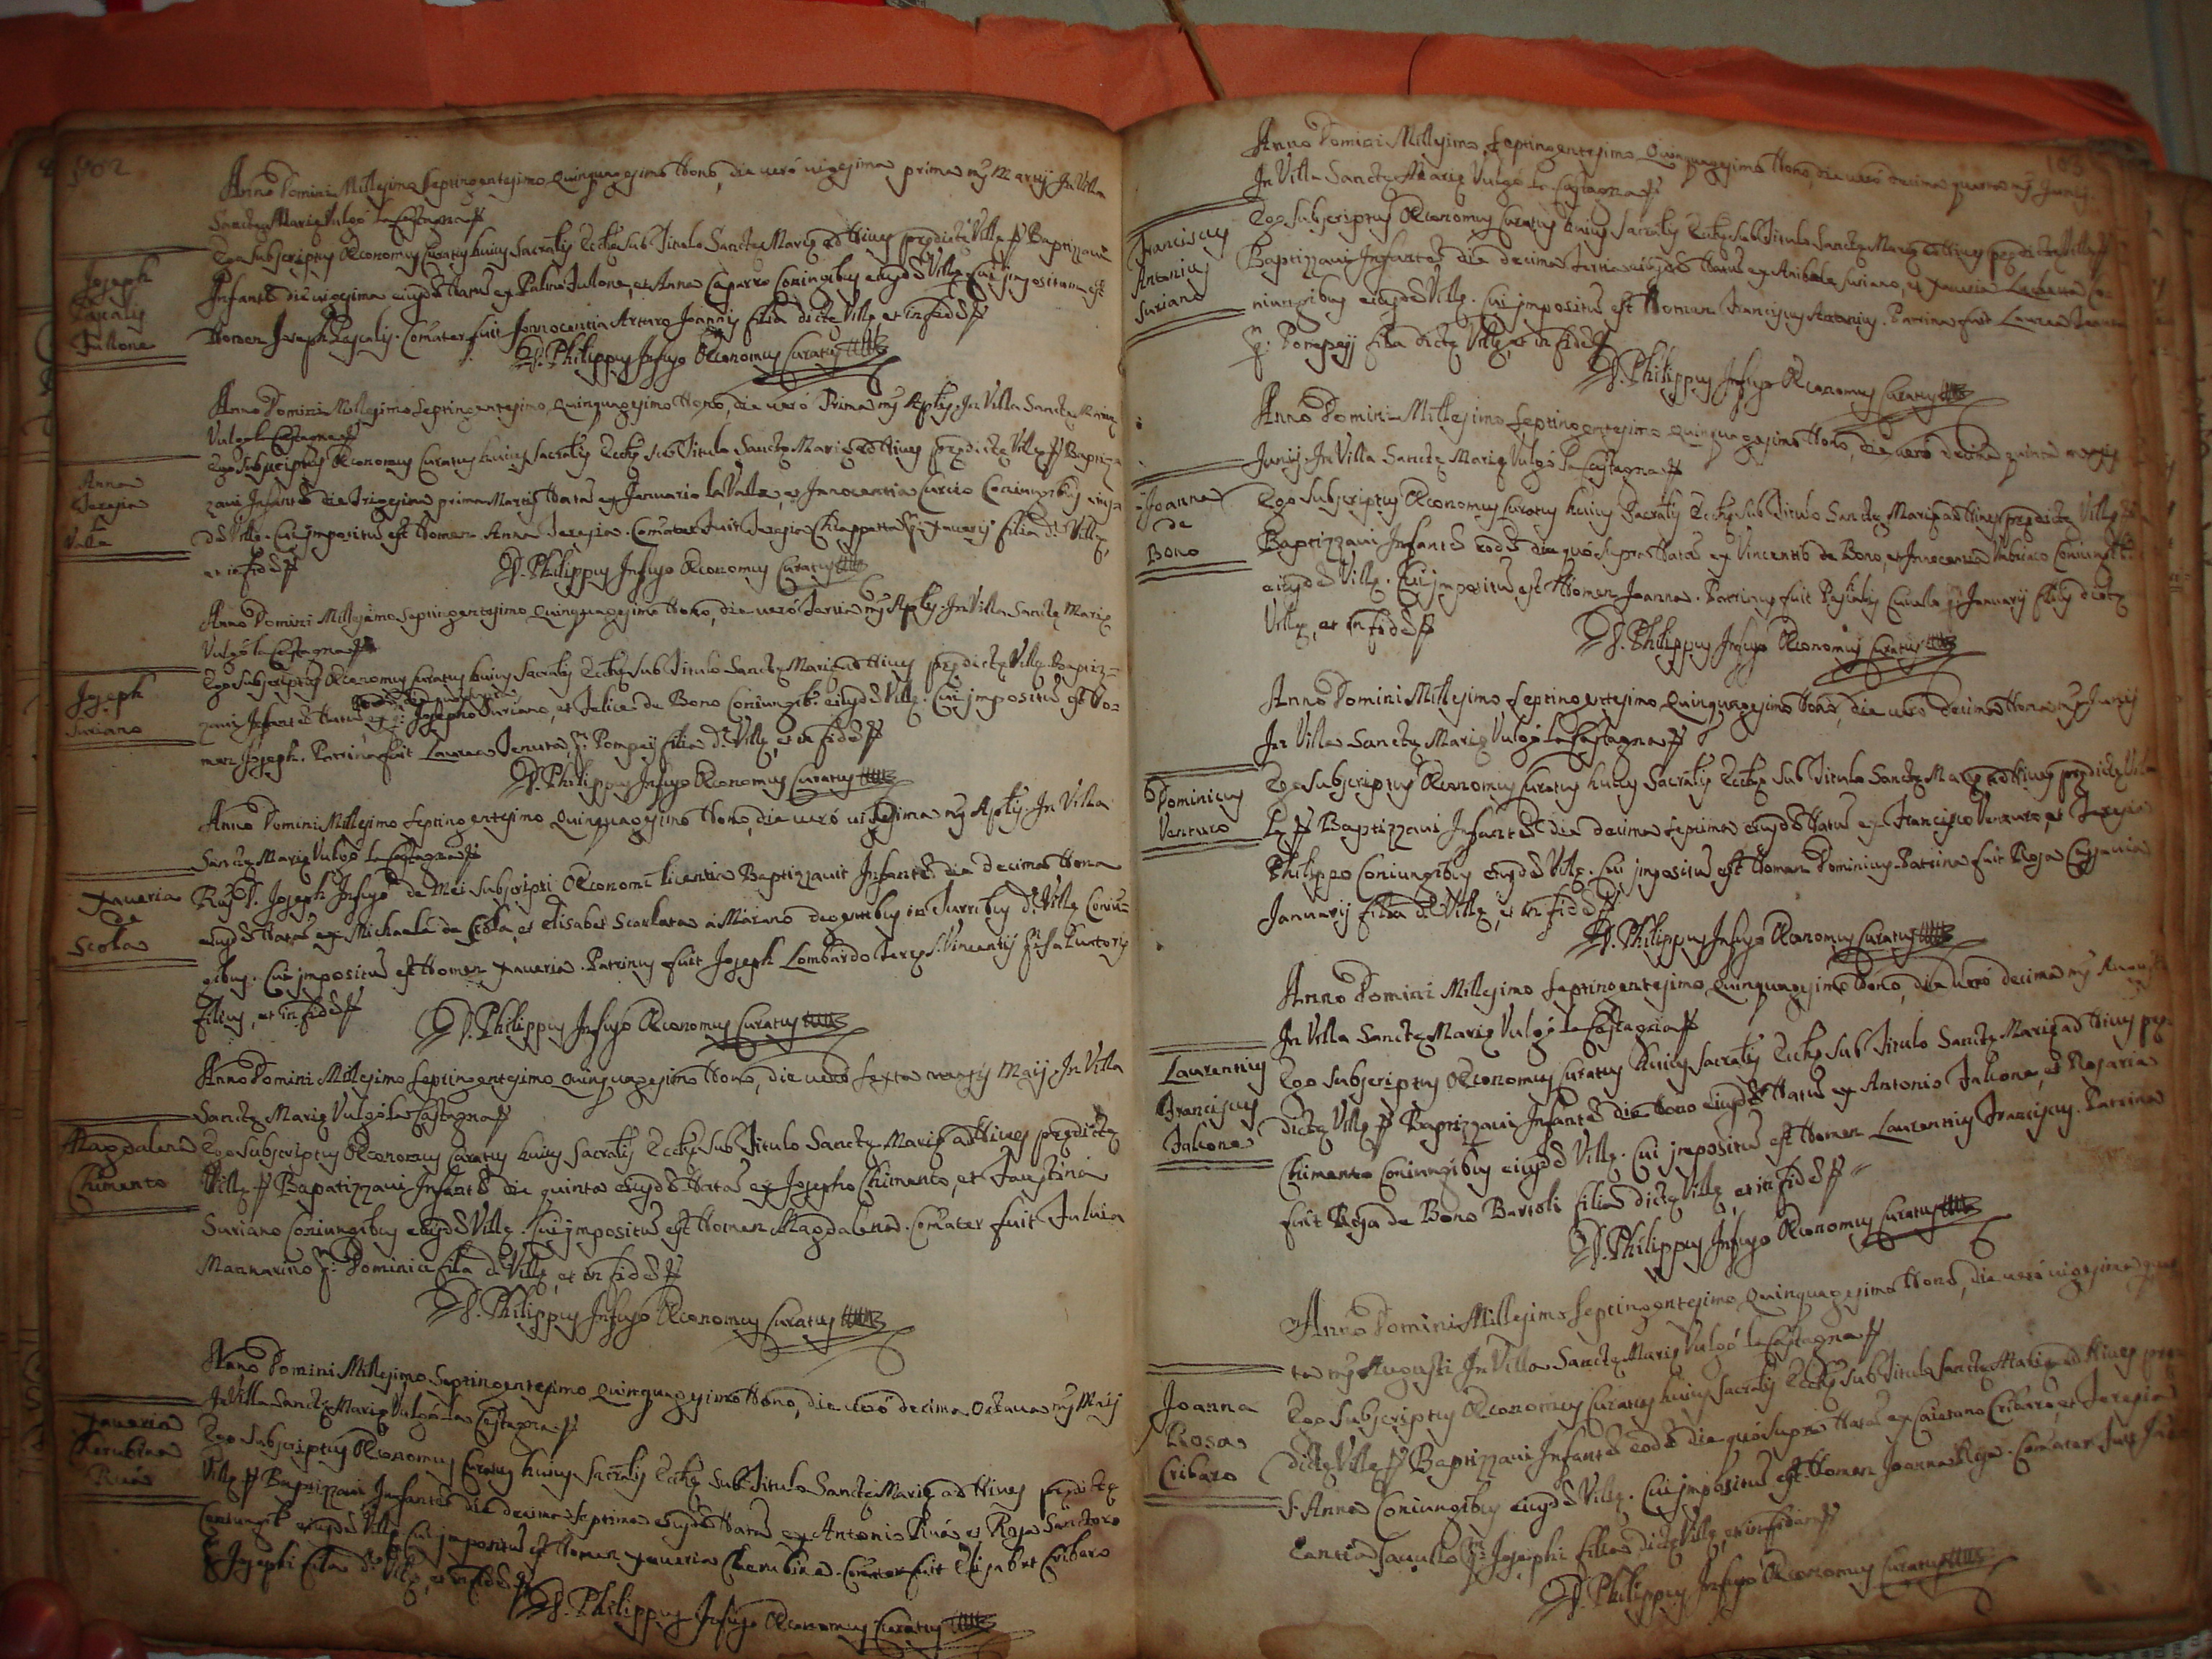 502
Anno Domini Millesimo Septingentesimo Quinquagesimo Nono, die uerò uigesima prima mẽs Martij In Villa
Sanctę Marię Vulgò la Castagna
Joseph
Pascalis
Falcone
Ego Subscriptus Œconomus Curatus huius Sacralis Eccłę sub Titulo Sanctę Marię ad Niues prędictę Villę Baptizzaui
Infantẽ die uigesima eiusdẽ Natũ ex Falcone, et Anna Caparro Coniugibus eiusdẽ Villę. Cui impositum est
Nomen Joseph Pascalis. Com̃ater fuit Innocentia Arturo Joannis filia dictę Villę et in fidẽ
D. Philippus Infuso Œconomus Curatus
Anno Domini Millesimo Septingentesimo Quinquagesimo Nono, die uerò Prima mẽs Apłis In Villa Sanctę Marię
Vulgò la Castagna
Anna
Teresia
la
Valle
Ego Subscriptus Œconomus Curatus huius Sacralis Eccłę sub Titulo Sanctę Marię ad Niues prędictę Villę Baptiz
zaui Infantẽ die Trigesima prima Martij Natũ ex Januario la Valle, et Innocentia Curcio Coniugibus eius
dẽ Villę. Cui impositũ est Nomen Anna Teresia. Com̃ater fuit Teresia Chiappetta qm̃ Xauerij filia d. Villę,
et in fidẽ
D. Philippus Infuso Œconomus Curatus
Anno Domini Millesimo Septingentesimo Quinquagesimo Nono, die uerò Tertia mẽs Apłis In Villa Sanctę Marię
Vulgò la Castagna
Joseph
Suriano
Ego Subscriptus Œconomus Curatus huius Sacralis Eccłę sub Titulo Sanctę Marię ad Niues prędictę Villę Baptiz=
zaui Infantẽ Natũ ex qm̃ Josepho Suriano, et Felice de Bono Coniugib. eiusdẽ Villę. Cui impositũ est No=
men Joseph. Patrina fuit Laurea Tenuta, qm̃ Pompeij filia d. Villę, et in fidẽ
D. Philippus Infuso Œconomus Curatus
Anno Domini Millesimo Septingentesimo Quinquagesimo Nono, die uerò uigesima mẽs Apłis In Villa
Sanctę Marię Vulgò la Castagna
Xaueria
de
Scola
D. Joseph Infuso de mei Subscripti Œconomi licentia Baptizzauit Infantẽ die decima Nona
eiusdẽ Natũ ex Michaele de Scola, et Elisabet Scarlata à Maiano degentibus in Turribus d. Villę Coniu=
gibus. Cui impositũ est Nomen Xaueria. Patrinus fuit Joseph Lombardo Terrę S. Vincentij
filius, et in fidẽ
D. Philippus Infuso Œconomus Curatus
Anno Domini Millesimo Septingentesimo Quinquagesimo Nono, die uerò Sexta mensis Maij In Villa
Sanctę Marię Vulgò la Castagna
Magdalena
Chimento
Ego Subscriptus Œconomus Curatus huius Sacralis Eccłę sub Titulo Sanctę Marię ad Niues prędictę
Villę Bapatizzaui Infantẽ die quinta eiusdẽ Natũ ex Josepho Chimento, et Faustina
Suriano Coniugibus eiusdẽ Villę. Cui impositũ est Nomen Magdalena. Com̃ater fuit Fuluia
Mannarino qm̃ Dominici filia d. Villę, et in fidẽ
D. Philippus Infuso Œconomus Curatus
Anno Domini Millesimo Septingentesimo Quinquagesimo Nono, die uerò decima octaua mẽs Maij
In Villa Sanctę Marię Vulgò la Castagna
Xaueria
Cherubina
Ruà
Ego Subscriptus Œconomus Curatus huius Sacralis Eccłę sub Titulo Sanctę Marię ad Niues prędictę
Villę Baptizzaui Infantẽ die decima Septima eiusdẽ Natũ ex Antonio Ruà et Rosa Santoro
Coniugib. eiusdẽ Villę. Cui impositũ est Nomen Xaueria Cherubina. Com̃ater fuit Elisabet Cribaro
qm̃ Josephi filia d. Villę, et in fidẽ
D. Philippus Infuso Œconomus Curatus
Anno Domini Millesimo Septingentesimo Quinquagesimo Nono, die uerò decima quarta mẽs Junij
In Villa Sanctę Marię Vulgò la Castagna
Franciscus
Antonius
Suriano
Ego Subscriptus Œconomus Curatus huius Sacralis Eccłę sub Titulo Sanctę Marię ad Niues prędictę Villę
Baptizzaui Infantẽ die decima Tertia eiusdẽ Natũ ex Anibale Suriano, et Xaueria Co
niugibus eiusdẽ Villę. Cui impositũ est Nomen Franciscus Antonius. Patrina fuit Laurea Tenuta
qm̃ Pompeij filia dictę Villę, et in fidẽ
D. Philippus Infuso Œconomus Curatus
Anno Domini Millesimo Septingentesimo Quinquagesimo Nono, die uerò decima quinta mensis
Junij In Villa Sanctę Marię Vulgò la Castagna
Joanna
de
Bono
Ego Subscriptus Œconomus Curatus huius Sacralis Eccłę sub Titulo Sanctę Marię ad Niues prędictę Villę
Baptizzaui Infantẽ eodẽ die quò supra Natũ ex Vincentio de Bono, et Innocentia Coniugib.
eiusdẽ Villę. Cui impositũ est Nomen Joanna. Patrinus fuit Pascalis qm̃ Januarij filius dictę
Villę, et in fidẽ
D. Philippus Infuso Œconomus Curatus
Anno Domini Millesimo Septingentesimo Quinquagesimo Nono, die uerò decima Nona mẽs Junij
In Villa Sanctę Marię Vulgò la Castagna
Dominicus
Venturo
Ego Subscriptus Œconomus Curatus huius Sacralis Eccłę sub Titulo Sanctę Marię ad Niues prędictę Vil
lę Baptizzaui Infantẽ die decima Septima eiusdẽ Natũ ex Francisco Venturo, et Teresia
Philippo Coniugibus eiusdẽ Villę. Cui impositũ est Nomen Dominicus. Patrina fuit Rosa
Januarij filia d. Villę, et in fidẽ
D. Philippus Infuso Œconomus Curatus
Anno Domini Millesimo Septingentesimo Quinquagesimo Nono, die uerò decima mẽs Augusti
In Villa Sanctę Marię Vulgò la Castagna
Laurentius
Franciscus
Falcone
Ego Subscriptus Œconomus Curatus huius Sacralis Eccłę sub Titulo Sanctę Marię ad Niues prę
dictę Villę Baptizzaui Infantẽ die Nono eiusdẽ Natũ ex Antonio Falcone, et Rosaria
Chimento Coniugibus eiusdẽ Villę. Cui impositũ est Nomen Laurentius Franciscus. Patrina
fuit Rosa de Bono Bartoli filia dictę Villę, et in fidẽ
D. Philippus Infuso Œconomus Curatus
Anno Domini Millesimo Septingentesimo Quinquagesimo Nono, die uerò uigesima quar
ta mẽs Augusti In Villa Sanctę Marię Vulgò la Castagna
Joanna
Rosa
Cribaro
Ego Subscriptus Œconomus Curatus huius Sacralis Eccłę sub Titulo Sanctę Marię ad Niues prę
dictę Villę Baptizzaui Infantẽ eodẽ die quò supra Natũ ex Caietano Cribaro, et Teresia
S. Anna Coniugibus eiusdẽ Villę. Cui impositũ est Nomen Joanna Rosa. Com̃ater fuit
qm̃ Josephi filia dictę Villę, et in fidẽ
D. Philippus Infuso Œconomus Curatus